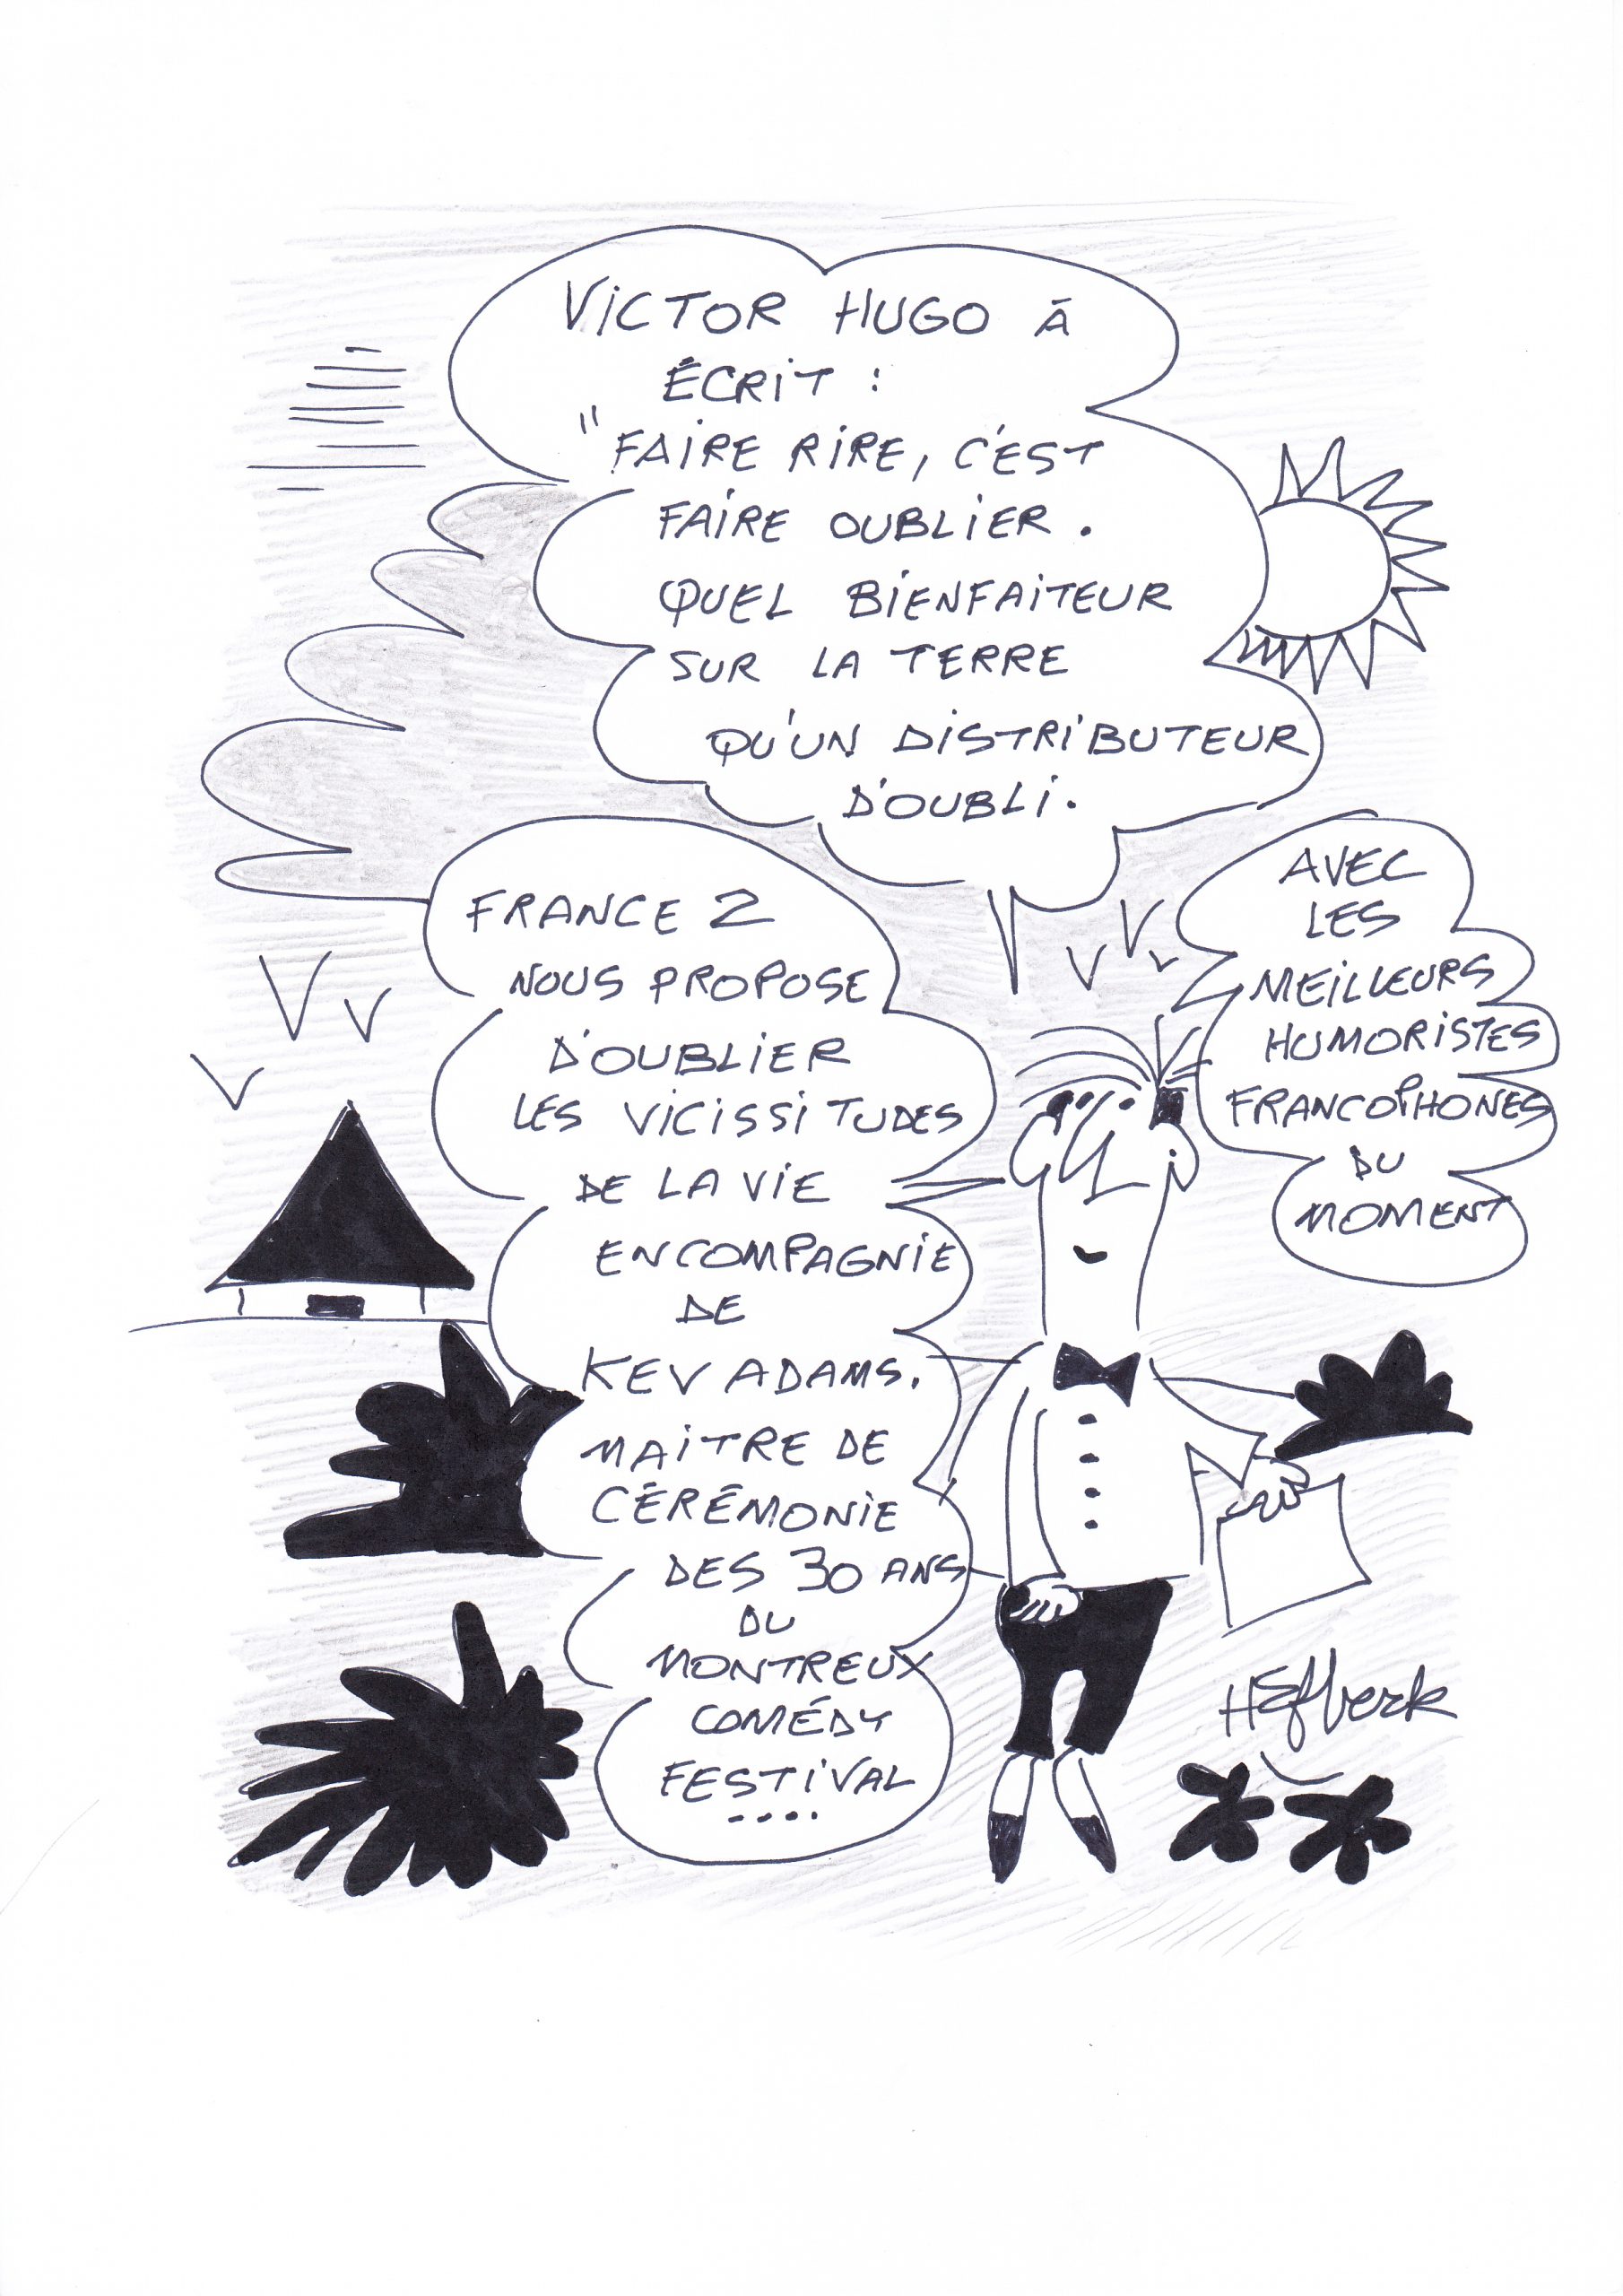 VICTOR HUGO À
ÉCRIT :
"FAIRE RIRE, C'EST
FAIRE OUBLIER.
QUEL BIENFAITEUR
SUR LA TERRE
QU'UN DISTRIBUTEUR
D'OUBLI.
FRANCE 2
NOUS PROPOSE
D'OUBLIER
LES VICISSITUDES
DE LA VIE
EN COMPAGNIE
DE
KEV ADAMS.
MAITRE DE
CÉRÉMONIE
DES 30 ANS
DU
MONTREUX
COMÉDY
FESTIVAL
....
AVEC
LES
MEILLEURS
HUMORISTES
FRANCOPHONES
DU
MOMENT